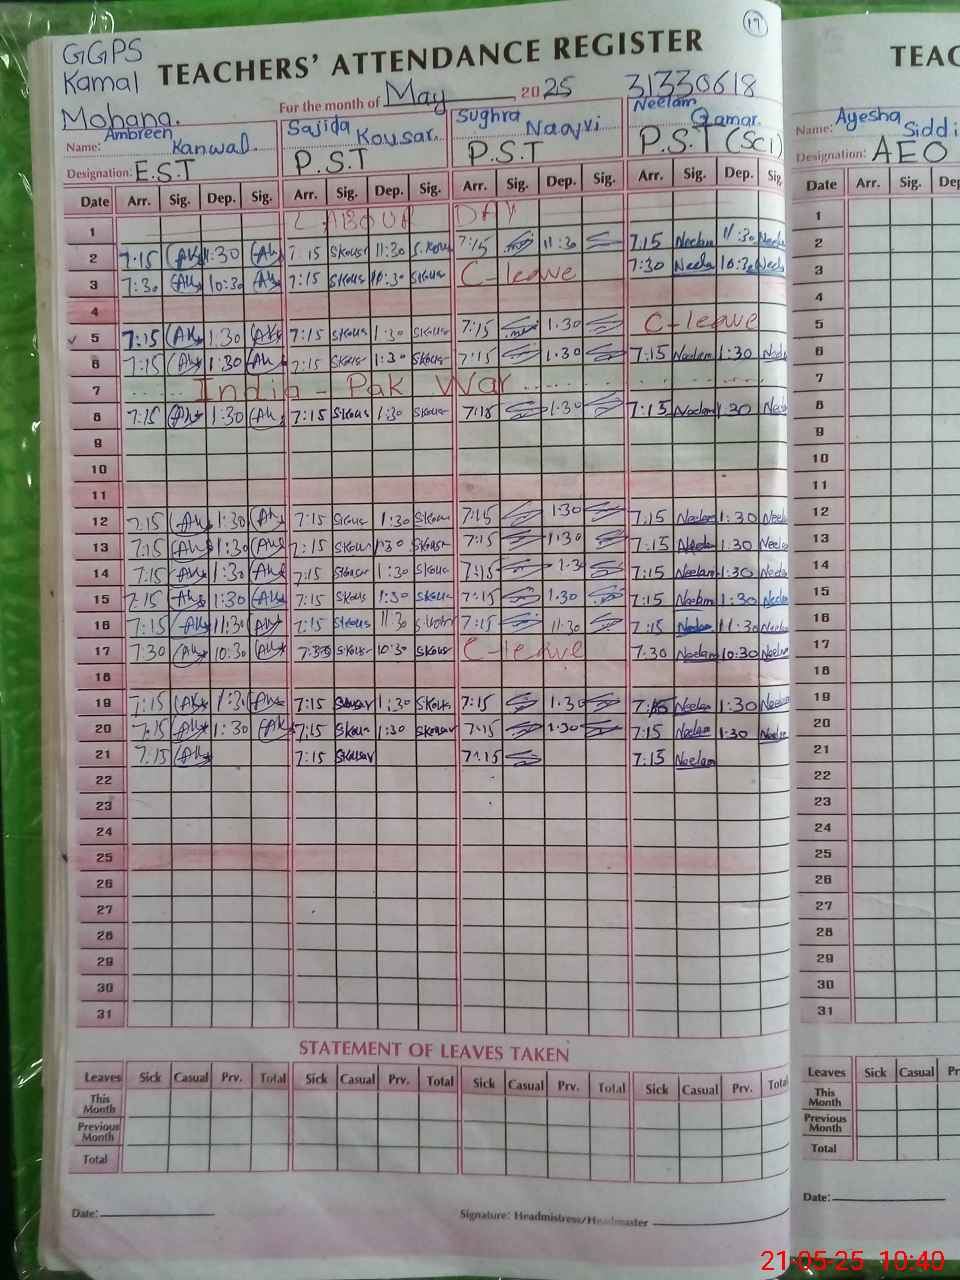 17
GGPS
Kamal
Mohana.
TEACHERS' ATTENDANCE REGISTER
For the month of May 2025
31330618
Name: Ambreen Kanwal.
Sajida Kousar.
Sughra Naqvi
Neelam Qamar.
Designation: E.S.T
P.S.T
P.S.T
P.S.T (Sci)
Date Arr. Sig. Dep. Sig. Arr. Sig. Dep. Sig. Arr. Sig. Dep. Sig. Arr. Sig. Dep. Sig.
1 LABOUR DAY
2 7:15 11:30 7:15 Skousr 11:30 S.Kou 7:15 11:30 7:15 Neelam 11:30 Neela
3 7:30 10:30 7:15 Skous 10:30 Skous C-leave 7:30 Neela 10:30 Neela
4
5 7:15 1:30 7:15 Skous 1:30 Skous 7:15 1.30 C-leave
6 7:15 1:30 7:15 Skous 1:30 Skous 7:15 1.30 7:15 Neelam 1:30 Neela
7 India - Pak War
8 7:15 1:30 7:15 Skous 1:30 Skous 7:15 1.30 7:15 Neelam 1.30 Nee
9
10
11
12 7:15 1:30 7:15 Skous 1:30 Skou 7:15 1:30 7:15 Neelam 1:30 Neela
13 7:15 1:30 7:15 Skou 1:30 Skousr 7:15 1:30 7:15 Neela 1.30 Neela
14 7:15 1:30 7:15 Skousr 1:30 Skous 7:15 1:3 7:15 Neelam 1:30 Neela
15 7:15 1:30 7:15 Skous 1:30 Skous 7:15 1.30 7:15 Neelam 1:30 Neela
16 7:15 11:30 7:15 Skous 11:30 7:15 11:30 7:15 Neelam 11:30 Neela
17 7:30 10:30 7:30 Skous 10:30 Skous C-leave 7:30 Neelam 10:30 Neelam
18
19 7:15 1:30 7:15 Skousar 1:30 Skous 7:15 1.30 7:15 Neelam 1:30 Neelam
20 7:15 1:30 7:15 Skous 1:30 Skousar 7:15 1:30 7:15 Neelam 1:30 Neela
21 7:15 7:15 Skousar 7:15 7:15 Neelam
22
23
24
25
26
27
28
29
30
31
STATEMENT OF LEAVES TAKEN
Leaves Sick Casual Prv. Total Sick Casual Prv. Total Sick Casual Prv. Total Sick Casual Prv. Total
This Month
Previous Month
Total
Date:
Signature: Headmistress/Headmaster
TEAC
Name: Ayesha Siddi
Designation: AEO
Date Arr. Sig. De
1
2
3
4
5
6
7
8
9
10
11
12
13
14
15
16
17
18
19
20
21
22
23
24
25
26
27
28
29
30
31
Leaves Sick Casual Pr
This Month
Previous Month
Total
Date:
21-05-25 10:40